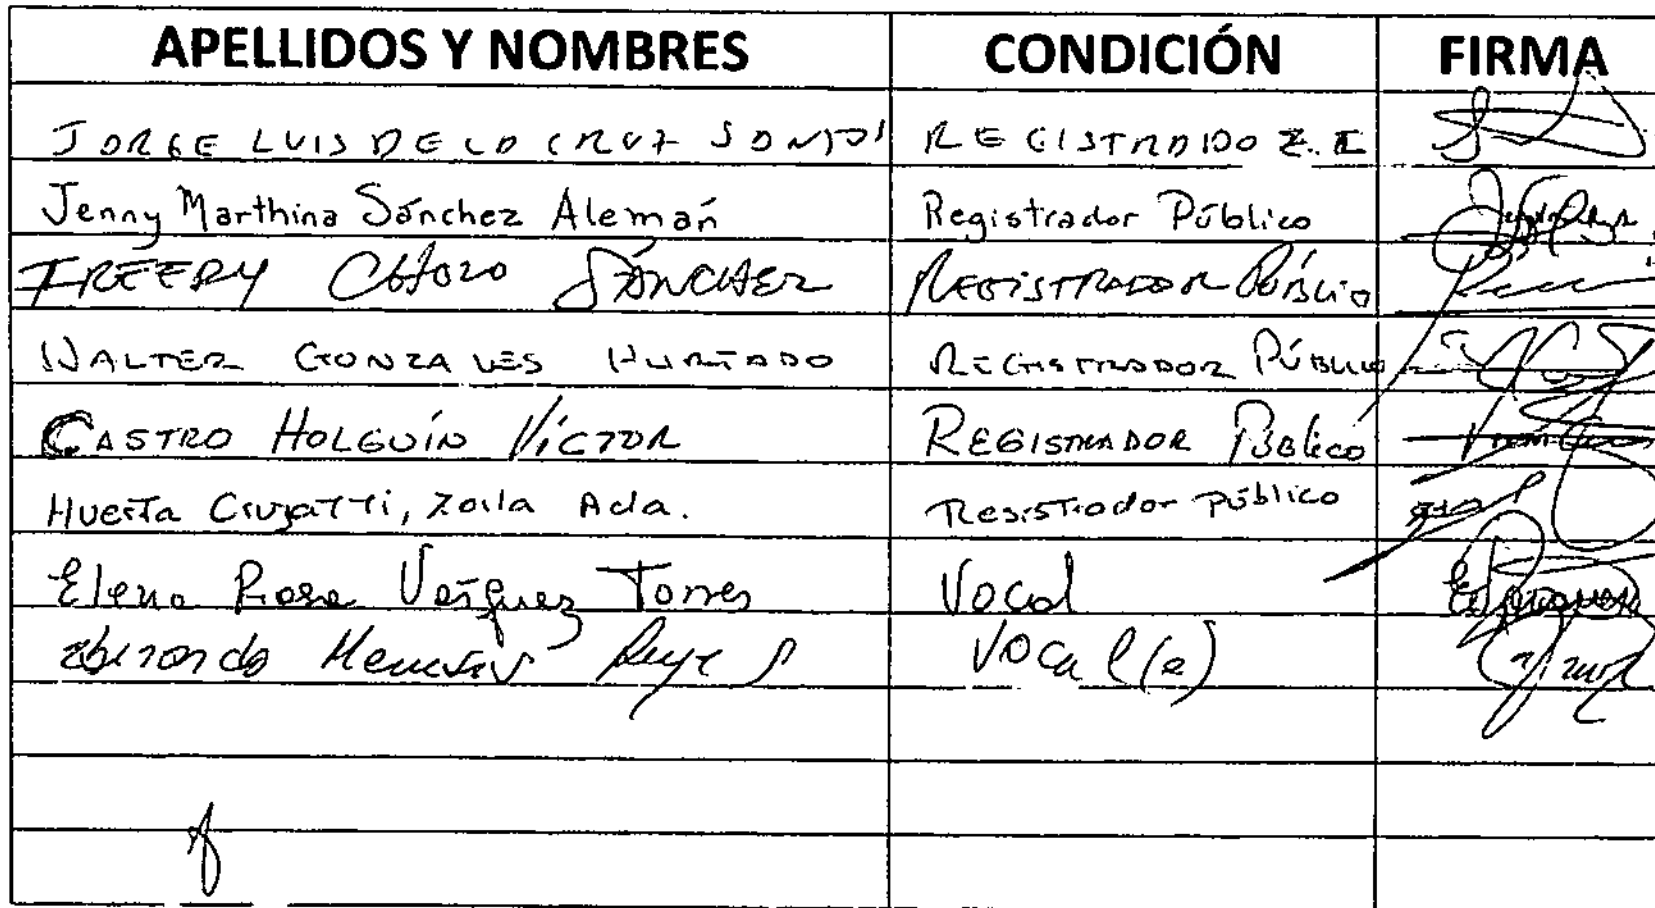 APELLIDOS Y NOMBRES CONDICIÓN FIRMA
JORGE LUIS DE LA CRUZ SANTOS
Jenny Marthina Sánchez Alemán Registrador Público
FREEDY CHOZO SÁNCHEZ REGISTRADOR PÚBLICO
WALTER GONZALES HURTADO REGISTRADOR PÚBLICO
CASTRO HOLGUÍN VÍCTOR REGISTRADOR Público
Huerta, Zoila Ada. Registrador Público
Elena Rosa Vásquez Torres Vocal
Reyes Vocal (e)